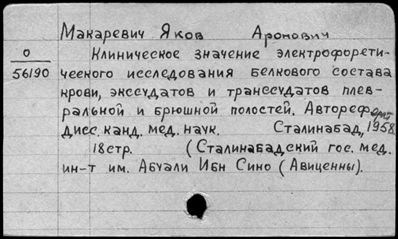 Макаревич Яков Аронович
О
56190
Клиническое значение электрофорети-
ческого исследования белкового состава
крови, экссудатов и транссудатов плев-
ральной и брюшной полостей. Автореферат
дисс. канд. мед. наук. Сталинабад, 1958.
18 стр. (Сталинабадский гос. мед.
ин-т им. Абуали Ибн Сино (Авиценны).